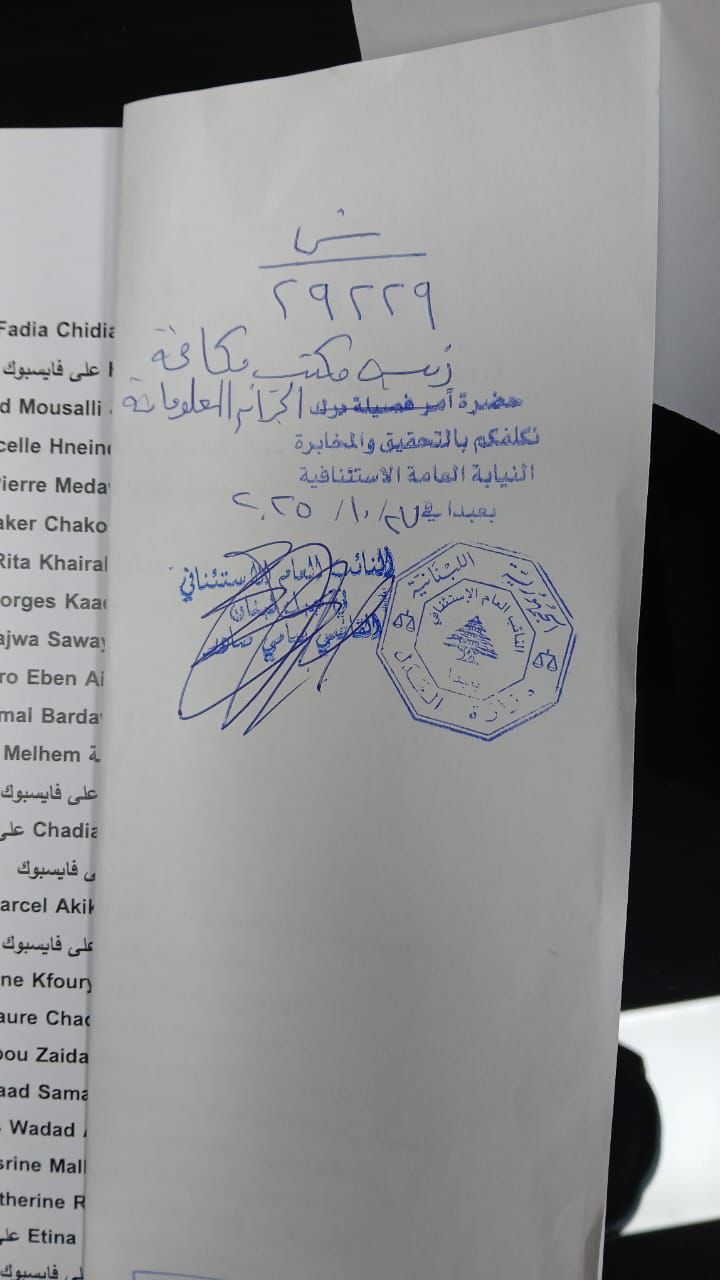 ش
٢٩٢٢٩
رئيس مكتب مكافحة
حضرة آمر فصيلة درك الجرائم المعلوماتية
نكلفكم بالتحقيق والمخابرة
النيابة العامة الاستئنافية
بعبدا في ٢٠٢٥/١٠/٢٧
النائب العام الاستئنافي
في جبل لبنان
القاضي سامي صادر
الجمهورية اللبنانية
النائب العام الإستئنافي
بعبدا
وزارة العدل
Fadia Chidia
على فايسبوك
d Mousalli
celle Hnein
Pierre Meda
aker Chako
Rita Khairal
orges Kaa
ajwa Saway
ro Eben Ai
mal Barda
Melhem
على فايسبوك
Chadia على
فايسبوك
arcel Akik
على فايسبوك
ne Kfoury
aure Chac
bou Zaida
aad Sama
Wadad
srine Mall
therine R
Etina
فايسبوك